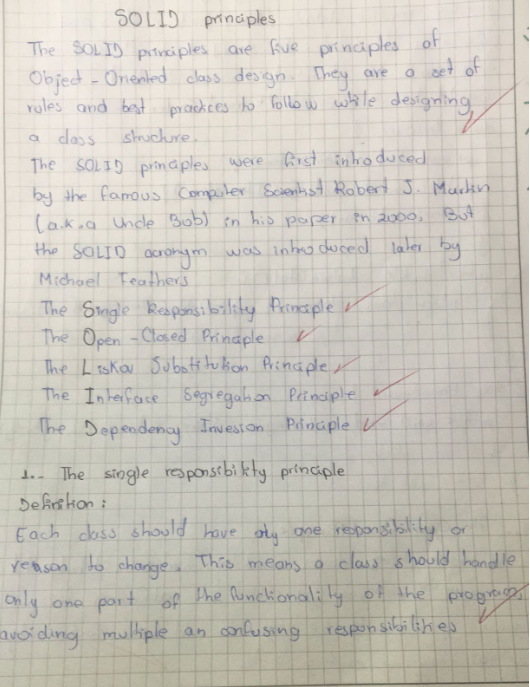 SOLID principles
The SOLID principles are five principles of
Object-Oriented class design. They are a set of
rules and best practices to follow while designing
a class structure.
The SOLID principles were first introduced
by the famous Computer Scientist Robert J. Martin
(a.k.a Uncle Bob) in his paper in 2000. But
the SOLID acronym was introduced later by
Michael Feathers
The Single Responsibility Principle
The Open-Closed Principle
The Liskov Substitution Principle
The Interface Segregation Principle
The Dependency Inversion Principle
1.- The single responsibility principle
Definition:
Each class should have only one responsibility or
reason to change. This means a class should handle
only one part of the functionality of the program,
avoiding multiple an confusing responsibilities